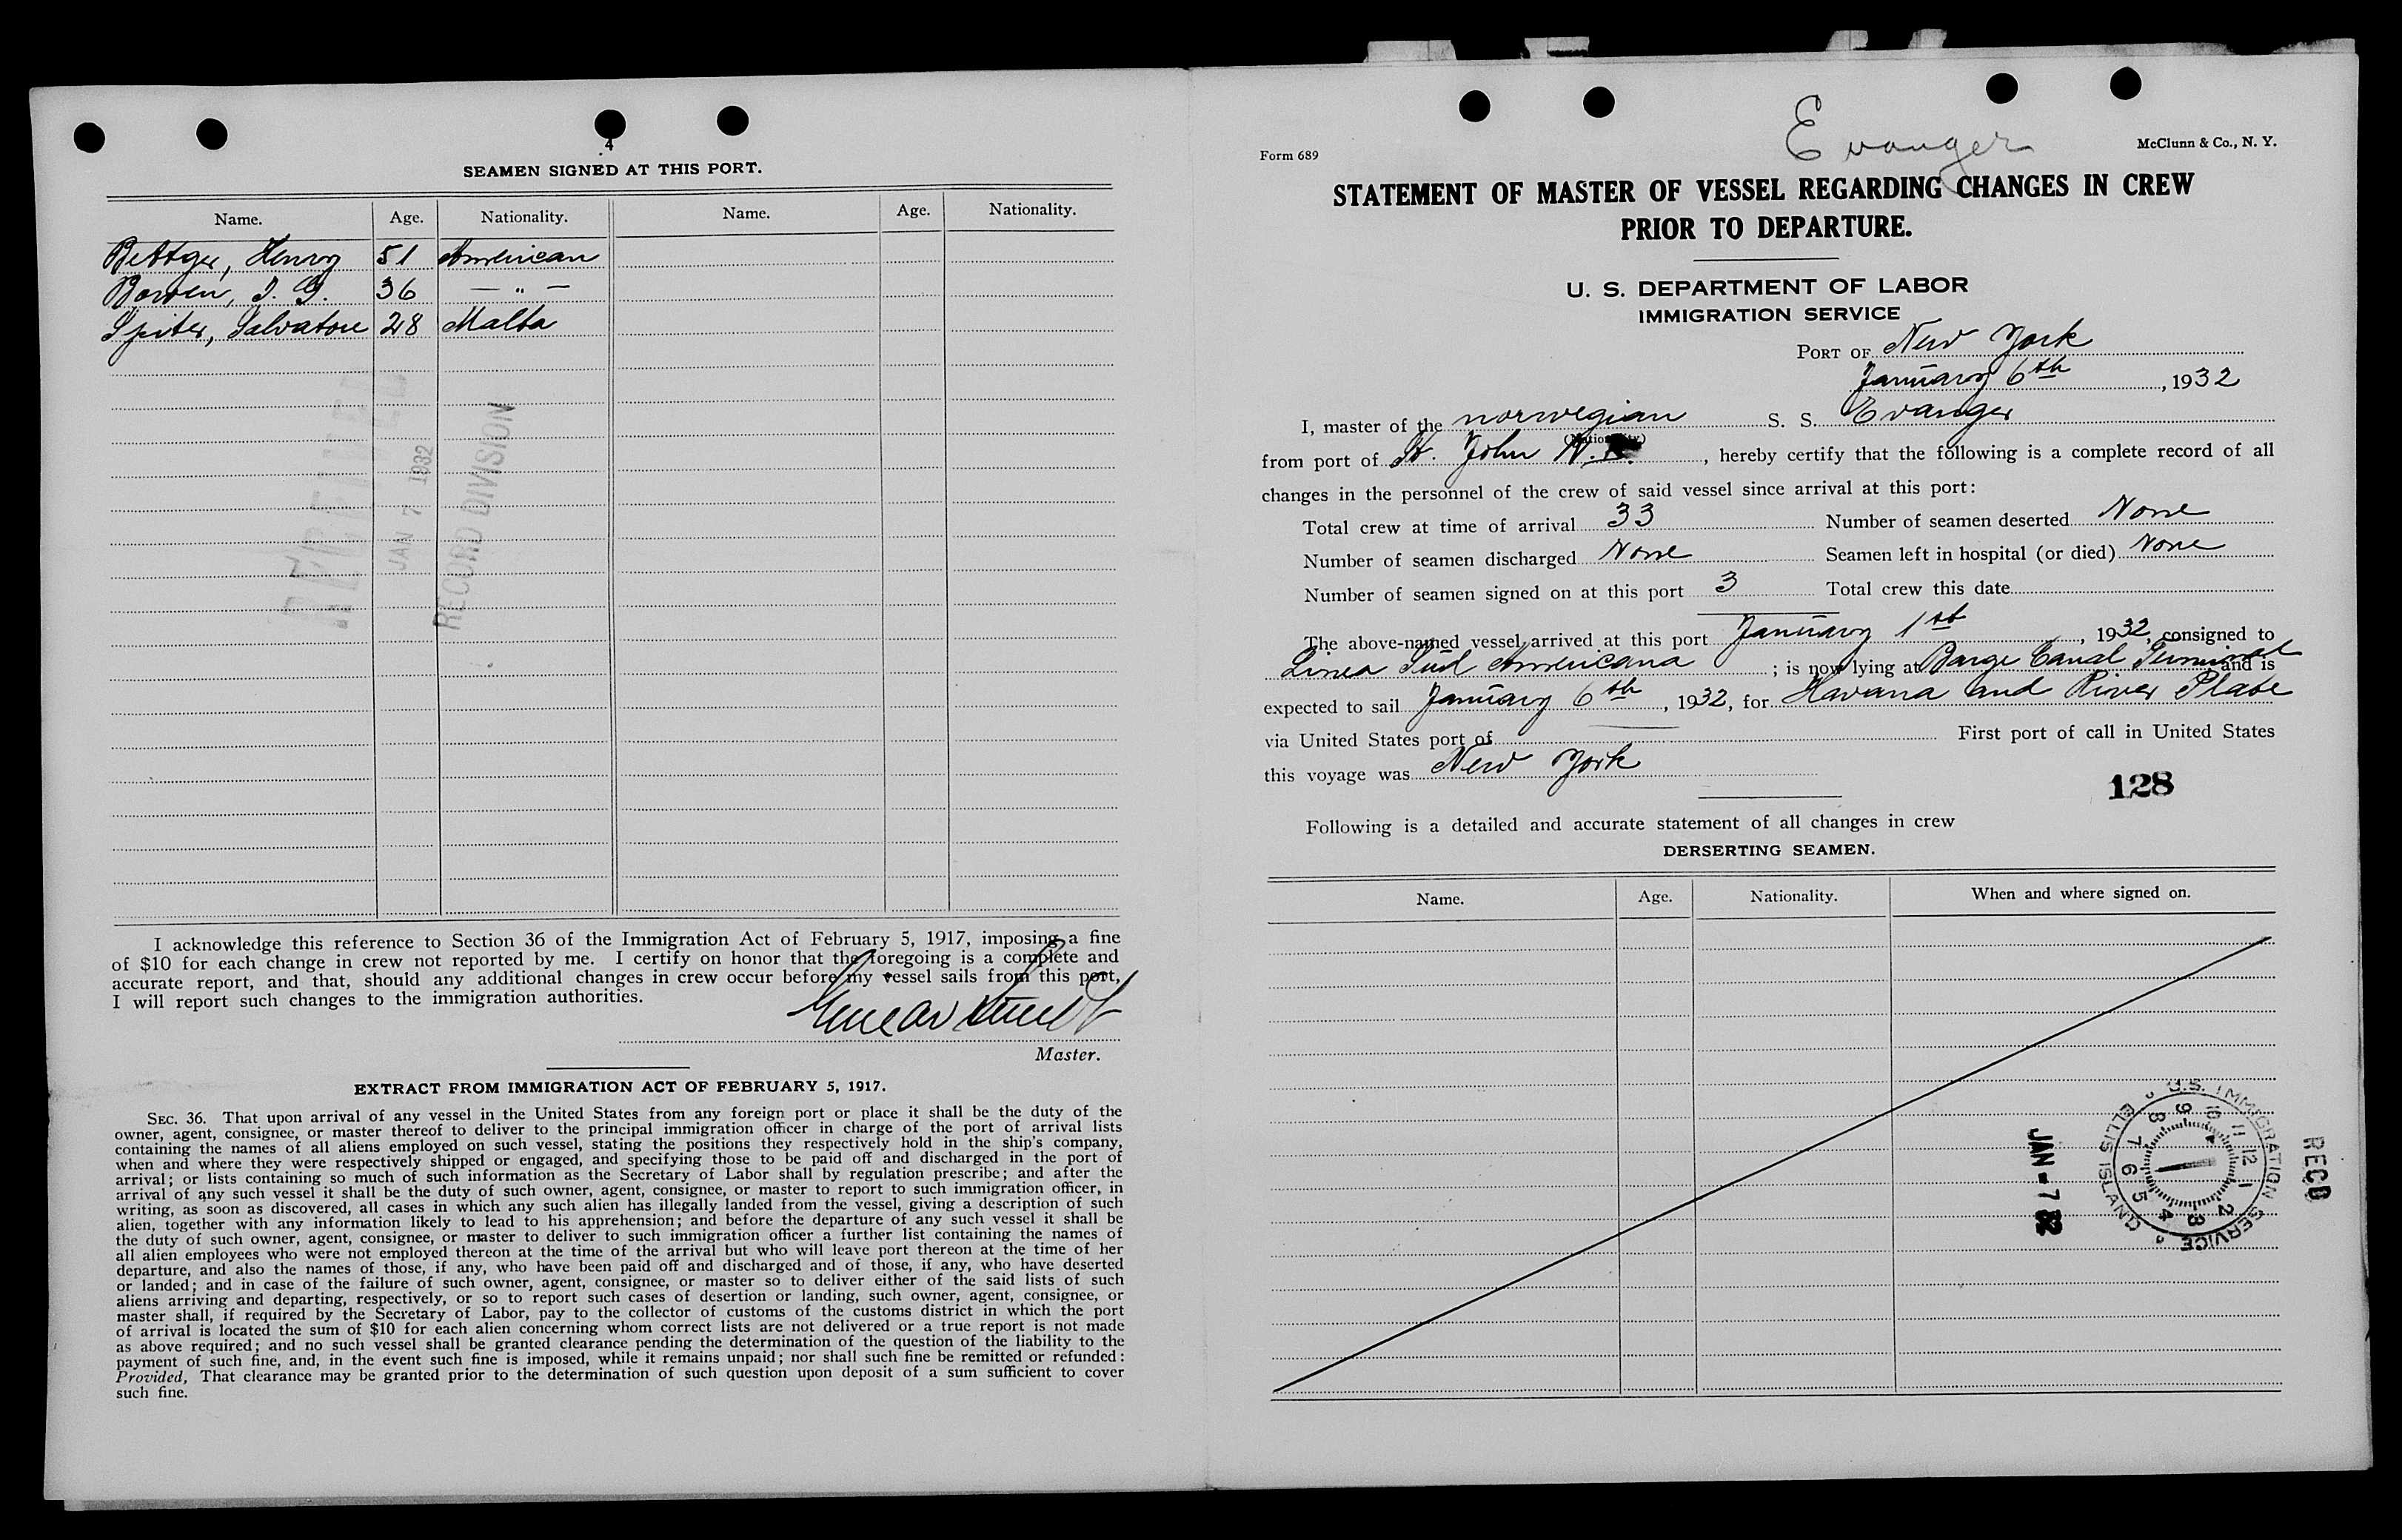 4
SEAMEN SIGNED AT THIS PORT.
Name. Age. Nationality. Name. Age. Nationality.
Bettger, Henry 51 American
Bowen, J. G. 36 — " —
Spiter, Salvatore 28 Malta
RECEIVED
JAN 7 1932
RECORD DIVISION
I acknowledge this reference to Section 36 of the Immigration Act of February 5, 1917, imposing a fine
of $10 for each change in crew not reported by me. I certify on honor that the foregoing is a complete and
accurate report, and that, should any additional changes in crew occur before my vessel sails from this port,
I will report such changes to the immigration authorities.
Master.
EXTRACT FROM IMMIGRATION ACT OF FEBRUARY 5, 1917.
SEC. 36. That upon arrival of any vessel in the United States from any foreign port or place it shall be the duty of the
owner, agent, consignee, or master thereof to deliver to the principal immigration officer in charge of the port of arrival lists
containing the names of all aliens employed on such vessel, stating the positions they respectively hold in the ship's company,
when and where they were respectively shipped or engaged, and specifying those to be paid off and discharged in the port of
arrival; or lists containing so much of such information as the Secretary of Labor shall by regulation prescribe; and after the
arrival of any such vessel it shall be the duty of such owner, agent, consignee, or master to report to such immigration officer, in
writing, as soon as discovered, all cases in which any such alien has illegally landed from the vessel, giving a description of such
alien, together with any information likely to lead to his apprehension; and before the departure of any such vessel it shall be
the duty of such owner, agent, consignee, or master to deliver to such immigration officer a further list containing the names of
all alien employees who were not employed thereon at the time of the arrival but who will leave port thereon at the time of her
departure, and also the names of those, if any, who have been paid off and discharged and of those, if any, who have deserted
or landed; and in case of the failure of such owner, agent, consignee, or master so to deliver either of the said lists of such
aliens arriving and departing, respectively, or so to report such cases of desertion or landing, such owner, agent, consignee, or
master shall, if required by the Secretary of Labor, pay to the collector of customs of the customs district in which the port
of arrival is located the sum of $10 for each alien concerning whom correct lists are not delivered or a true report is not made
as above required; and no such vessel shall be granted clearance pending the determination of the question of the liability to the
payment of such fine, and, in the event such fine is imposed, while it remains unpaid; nor shall such fine be remitted or refunded:
Provided, That clearance may be granted prior to the determination of such question upon deposit of a sum sufficient to cover
such fine.
Evanger
Form 689
McClunn & Co., N. Y.
STATEMENT OF MASTER OF VESSEL REGARDING CHANGES IN CREW
PRIOR TO DEPARTURE.
U. S. DEPARTMENT OF LABOR
IMMIGRATION SERVICE
PORT OF New York
January 6th, 1932
I, master of the norwegian S. S. Evanger
(Nationality)
from port of St. John N. , hereby certify that the following is a complete record of all
changes in the personnel of the crew of said vessel since arrival at this port:
Total crew at time of arrival 33 Number of seamen deserted None
Number of seamen discharged None Seamen left in hospital (or died) None
Number of seamen signed on at this port 3 Total crew this date
The above-named vessel arrived at this port January 1st, 1932, consigned to
Linea Sud Americana ; is now lying at Barge Canal Terminal and is
expected to sail January 6th, 1932, for Havana and River Plate
via United States port of First port of call in United States
this voyage was New York
128
Following is a detailed and accurate statement of all changes in crew
DERSERTING SEAMEN.
Name. Age. Nationality. When and where signed on.
U.S. IMMIGRATION SERVICE
ELLIS ISLAND
1 2 3 4 5 6 7 8 9 10 11 12
JAN - 7 32
RECD